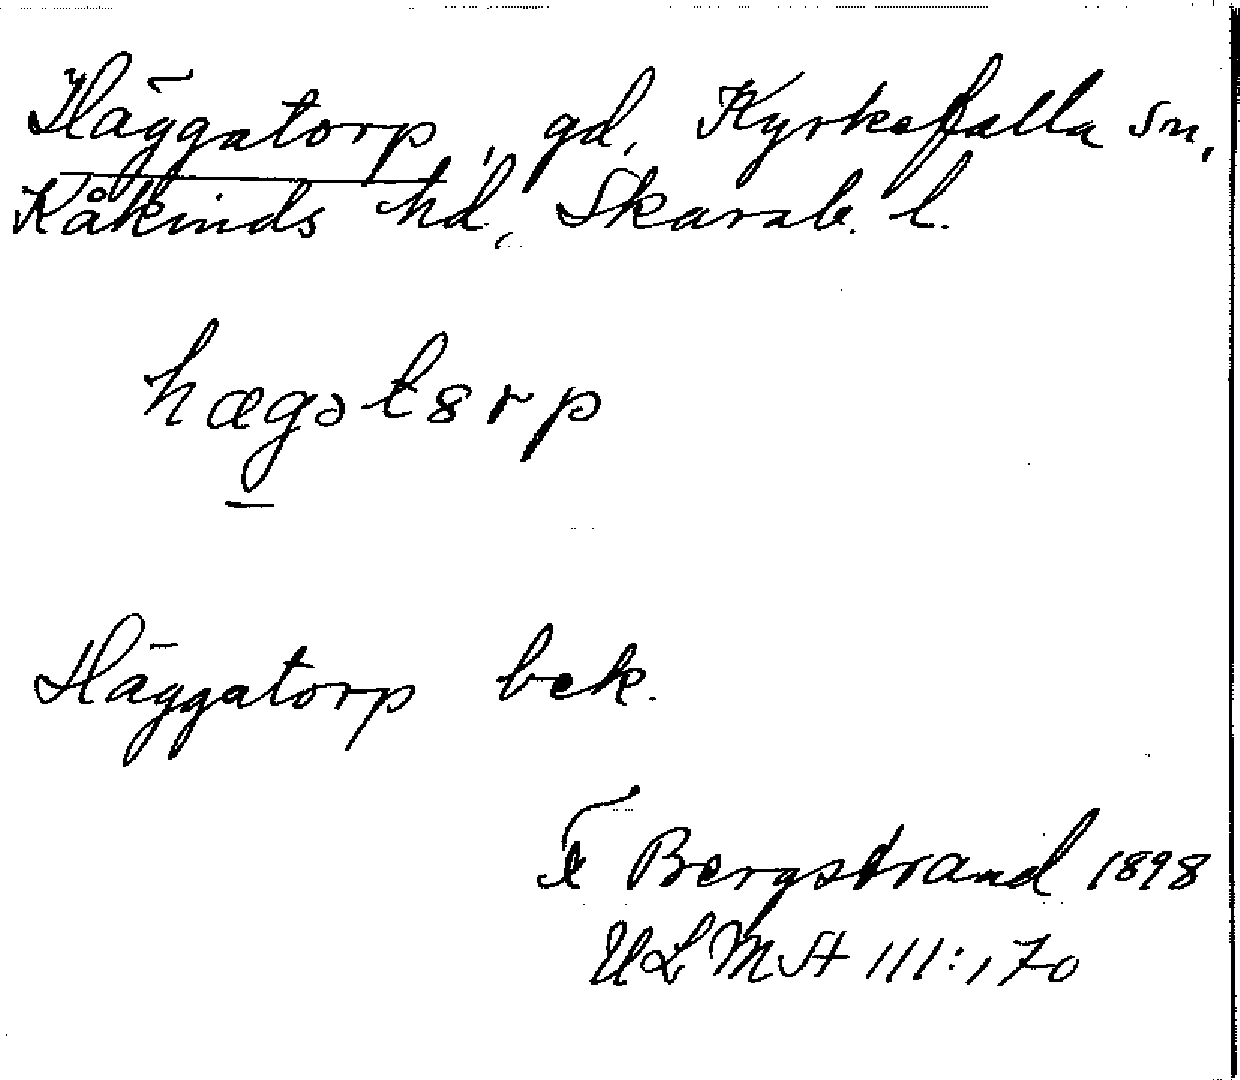 Häggatorp, gd, Kyrkefalla sn,
Kåkinds hd, Skarab. l.
hægatȣrp
Häggatorp bek.
F Bergstrand 1898
ULMA 111:170